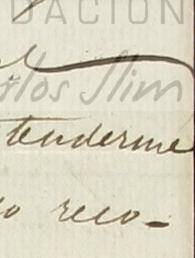 DACIÓN
los Slim
tenderme
o reco-